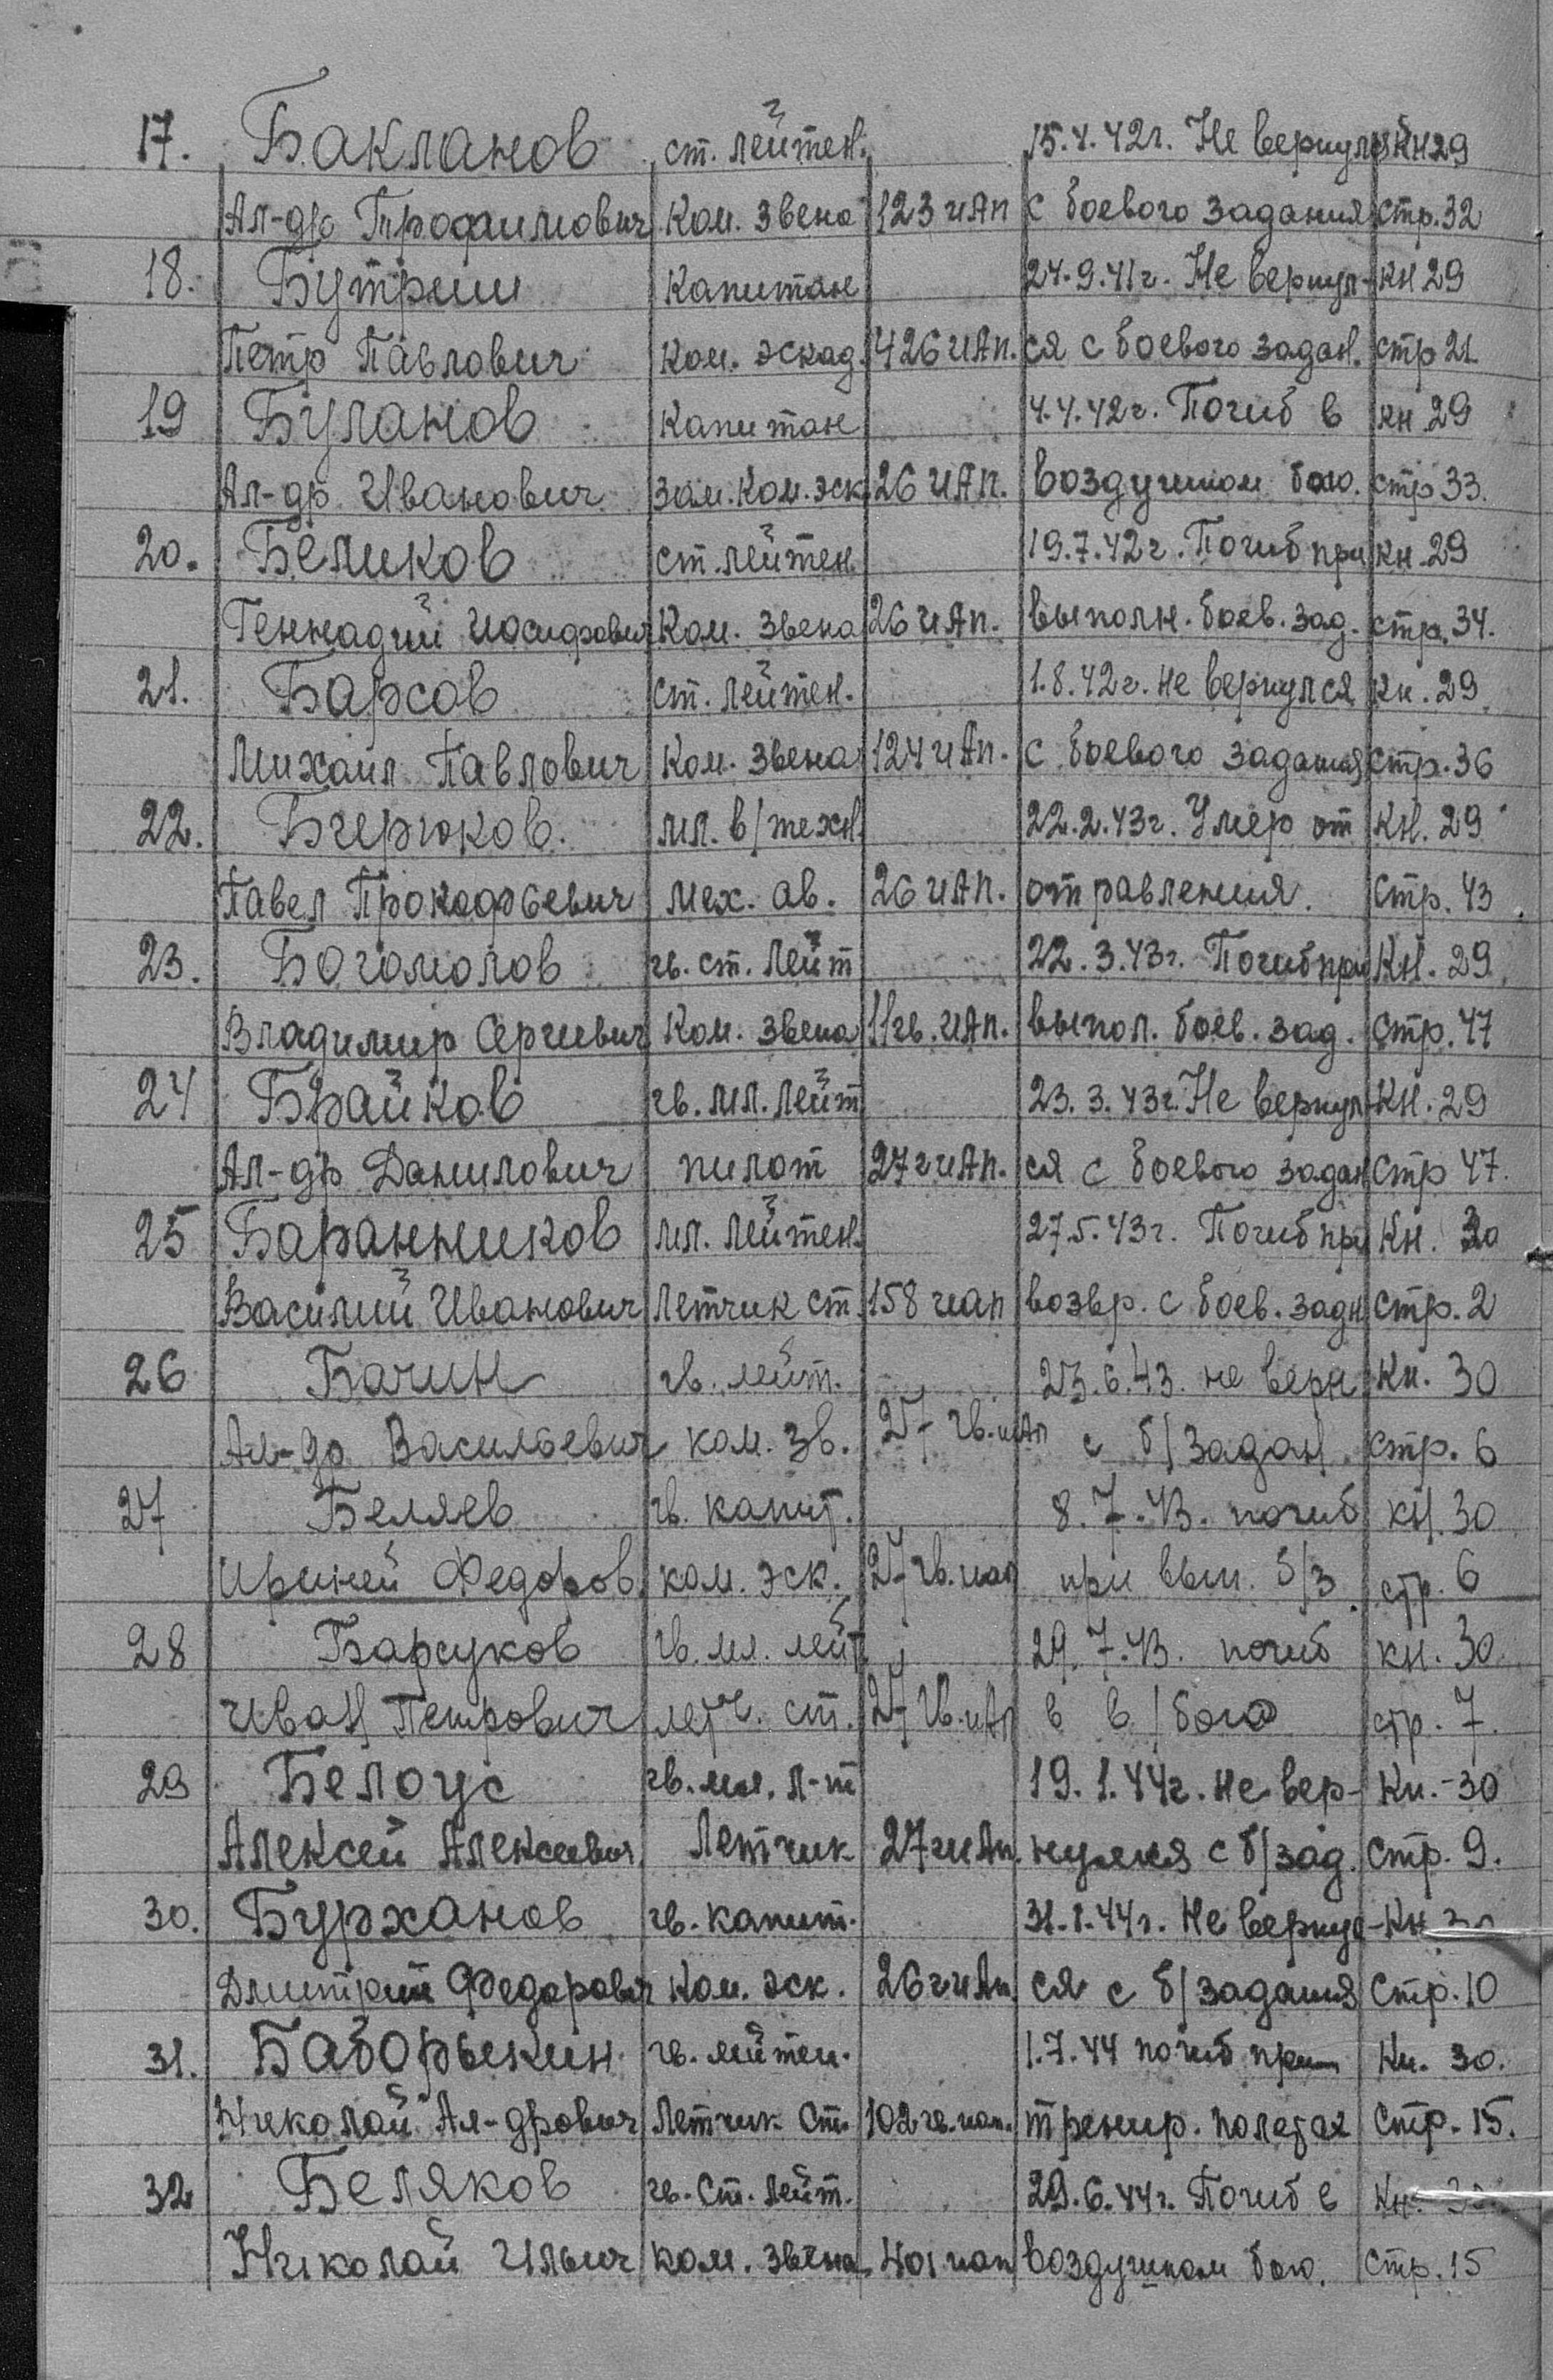 17. Бакланов ст. лейтен. 15.4.42г. Не вернулся Кн29
Ал-др Трофимович Ком. звена 123 иАп с боевого задания стр.32
18. Бутрим Капитан 24.9.41г. Не вернул- кн 29
Петр Павлович Ком. эскад. 426 иАп. ся с боевого задан. стр 21
19 Буланов Капитан 4.4.42г. Погиб в кн 29
Ал-др Иванович зам. Ком. эск 26 иАп. воздушном бою. стр 33.
20. Беликов ст. лейтен. 19.7.42г. Погиб при кн. 29
Геннадий Иосифович Ком. звена 26 иАп. выполн. боев. зад. стр. 34.
21. Барсов ст. лейтен. 1.8.42г. не вернулся Кн. 29
Михаил Павлович Ком. звена 124 иАп. с боевого задания стр. 36
22. Бчерюков. мл. в/техн. 22.2.43г. Умер от Кн. 29
Павел Прокофьевич мех. ав. 26 иАп. отравления. Стр. 43
23. Богомолов гв. ст. лейт 22.3.43г. Погиб при Кн. 29
Владимир Сергиевич Ком. звена 11гв. иАп. выпол. боев. зад. Стр. 47
24 Брайков гв. мл. лейт 23.3.43г. Не вернул- Кн. 29
Ал-др Данилович пилот 27 гиАп. ся с боевого задан Стр 47.
25 Баранников мл. лейтен. 27.5.43г. Погиб при Кн. 30
Василий Иванович Летчик ст. 158 иап возвр. с боев. задн Стр. 2
26 Бачин гв. лейт. 23.6.43. не верн Кн. 30
Ал-др Васильевич ком. зв. 27 гв. иАп с б/задан. стр. 6
27 Беляев гв. капит. 8.7.43. погиб кн. 30
Ириней Федоров. ком. эск. 27 гв. иап при вып. б/з. стр. 6
28 Барсуков гв. мл. лейт 29.7.43. погиб кн. 30.
Иван Петрович летч. ст. 27 гв. иАп в в/бою стр. 7.
29 Белоус гв. мл. л-т 19.1.44г. не вер- Кн. -30
Алексей Алексеевич Летчик 27 гиАп. нулся с б/зад. Стр. 9.
30. Бурханов гв. капит. 31.1.44г. Не вернул- Кн 30
Дмитрий Федорович Ком. эск. 26 гиАп. ся с б/задания Стр. 10
31. Баборыкин гв. лейтен. 1.7.44 погиб при Кн. 30.
Николай Ал-дрович Летчик Ст. 102 гв. иап. тренир. полетах Стр. 15.
32 Беляков гв. Ст. лейт. 29.6.44г. Погиб в Кн.
Николай Ильич ком. звена 401 иап воздушном бою. Стр. 15